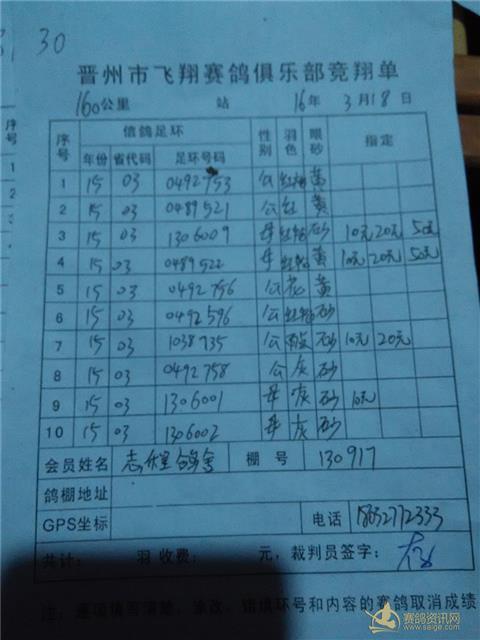 30
晋州市飞翔赛鸽俱乐部竞翔单
160公里 站 16年 3月18日
序号 信鸽足环 性别 羽色 眼砂 指定
年份 省代码 足环号码
1 15 03 0492753 公 红 黄
2 15 03 0489521 公 红 黄
3 15 03 1306009 母 砂 10元 20元 50元
4 15 03 0489522 母 黄 10元 20元 50元
5 15 03 0492756 公 花 黄
6 15 03 0492596 公 砂
7 15 03 1038735 公 砂 10元 20元
8 15 03 0492758 公 灰 砂
9 15 03 1306001 母 灰 砂 10元
10 15 03 1306002 母 灰 砂
会员姓名 鸽舍 棚号 130917
鸽棚地址
GPS坐标 电话 18632772333
共计: 羽 收费: 元, 裁判员签字:
错填环号和内容的赛鸽取消成绩
赛鸽资讯网
www.saige.com
序号
1
2
3